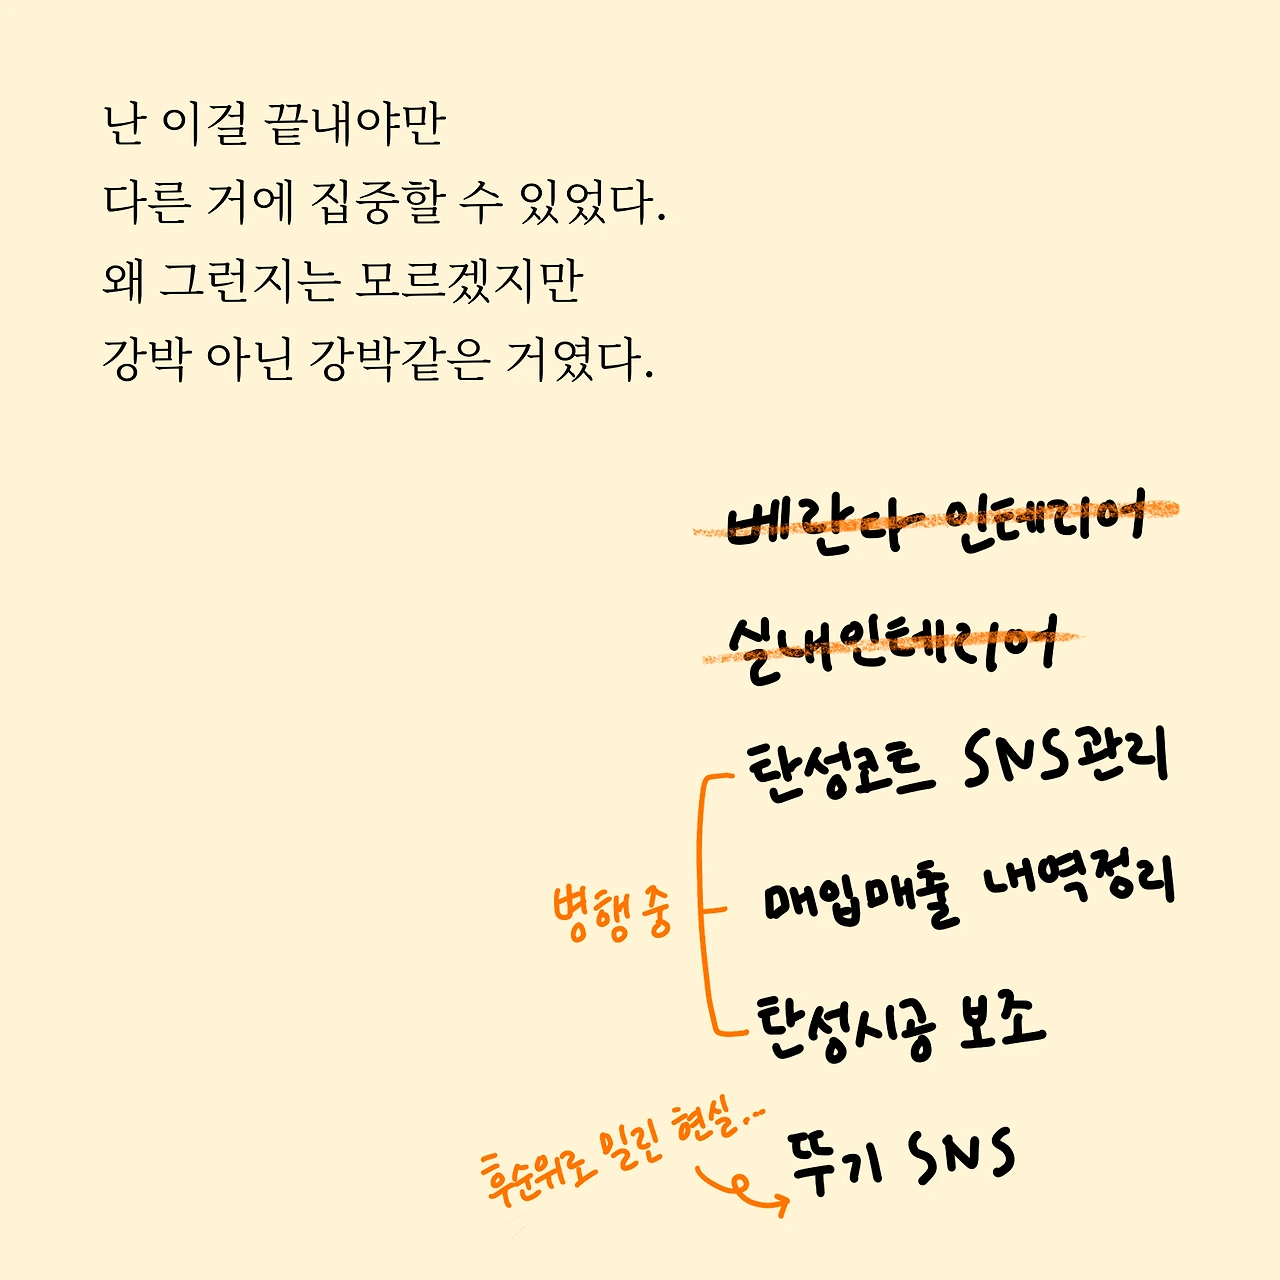 난 이걸 끝내야만
다른 거에 집중할 수 있었다.
왜 그런지는 모르겠지만
강박 아닌 강박같은 거였다.
베란다 인테리어
실내인테리어
탄성코트 SNS관리
매입매출 내역정리
병행중
탄성시공 보조
후순위로 밀린 현실...
뚜기 SNS